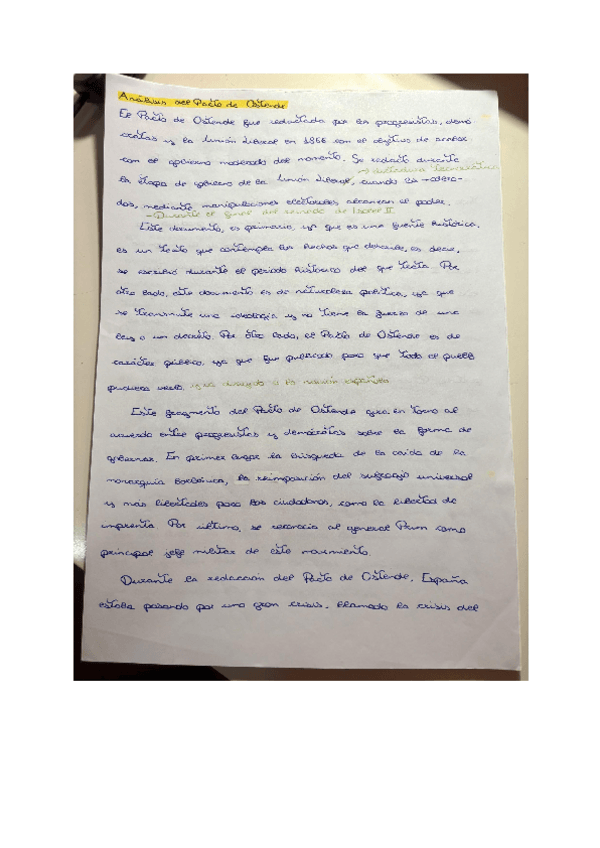 Análisis del Pacto de Ostende
El Pacto de Ostende fue redactado por los progresistas, demó
cratas y la Unión Liberal en 1866 con el objetivo de acabar
con el gobierno moderado del momento. Se redactó durante
la etapa de gobierno de la Unión Liberal, cuando los modera-
dos, mediante manipulaciones electorales alcanzan al poder.
- Durante el final del reinado de Isabel II.
Este documento, es primario, ya que es una fuente histórica,
es un texto que contempla los hechos que describe, es decir,
se escribió durante el período histórico del que trata. Por
otro lado, este documento es de naturaleza política, ya que
se transmite una ideología y no tiene la fuerza de una
ley o un decreto. Por otro lado, el Pacto de Ostende es de
carácter público, ya que fue publicado para que todo el pueblo
pudiera verlo. y va dirigido a la nación española
Este fragmento del Pacto de Ostende gira en torno al
acuerdo entre progresistas y demócratas sobre la forma de
gobernar. En primer lugar la búsqueda de la caída de la
monarquía borbónica, la reimposición del sufragio universal
y más libertades para los ciudadanos, como la libertad de
imprenta. Por último, se reconocía al general Prim como
principal jefe militar de este movimiento.
Durante la redacción del Pacto de Ostende, España
estaba pasando por una gran crisis, llamada la crisis del